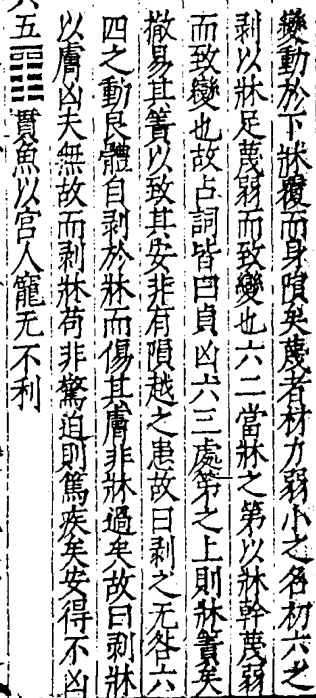 變動於下牀覆而身隕矣蔑者材力弱小之名初六之
剥以牀足蔑弱而致變也六二當牀之第以牀幹蔑弱
而致變也故占詞皆曰貞凶六三處第之上則牀簀矣
撤易其簀以致其安非有隕越之患故曰剥之无咎六
四之動艮體自剥於牀而傷其膚非牀過矣故曰剥牀
以膚凶夫無故而剥牀苟非驚迫則篤疾矣安得不凶
六五䷓貫魚以宫人寵无不利